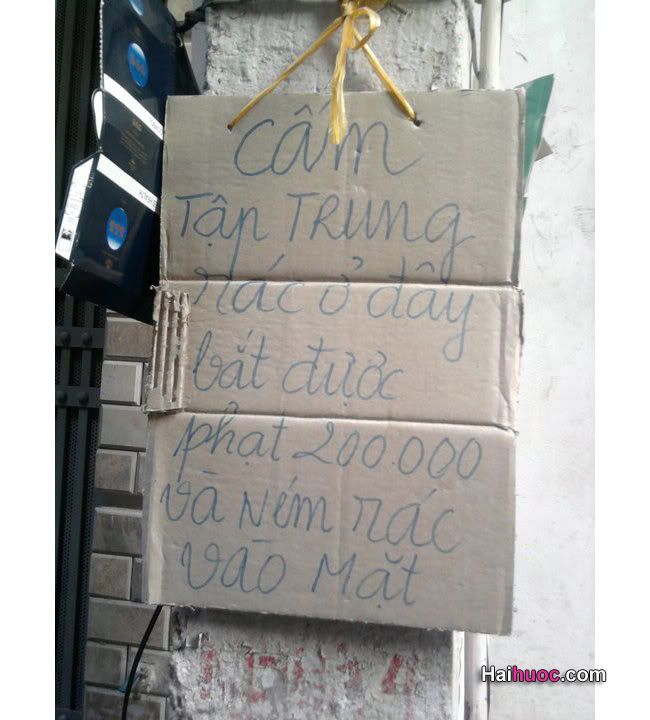 Cấm
Tập TRUNG
rác ở đây
bắt được
phạt 200.000
và Ném rác
vào Mặt
Haihuoc.com